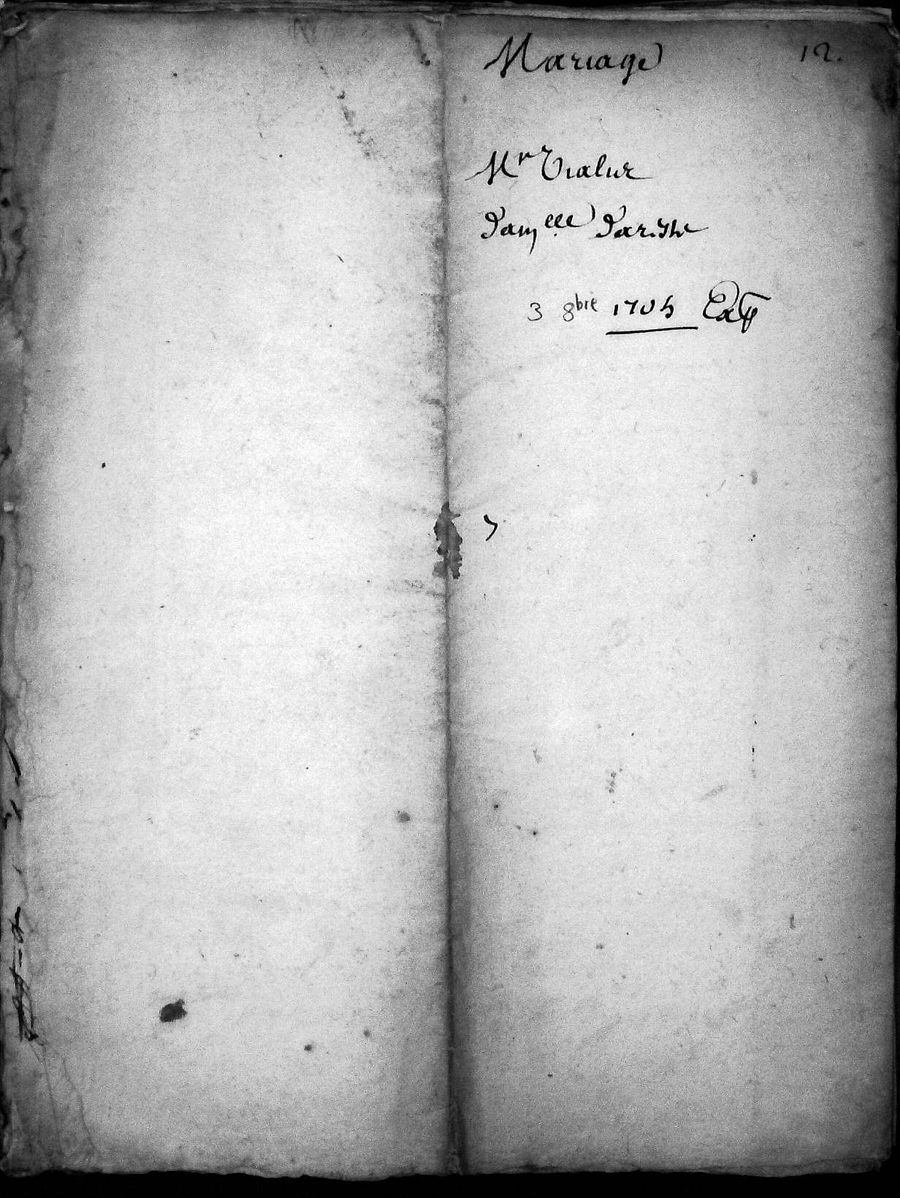 Mariage 12.
Mr Vialur
Dam.elle
3 8bre 1705